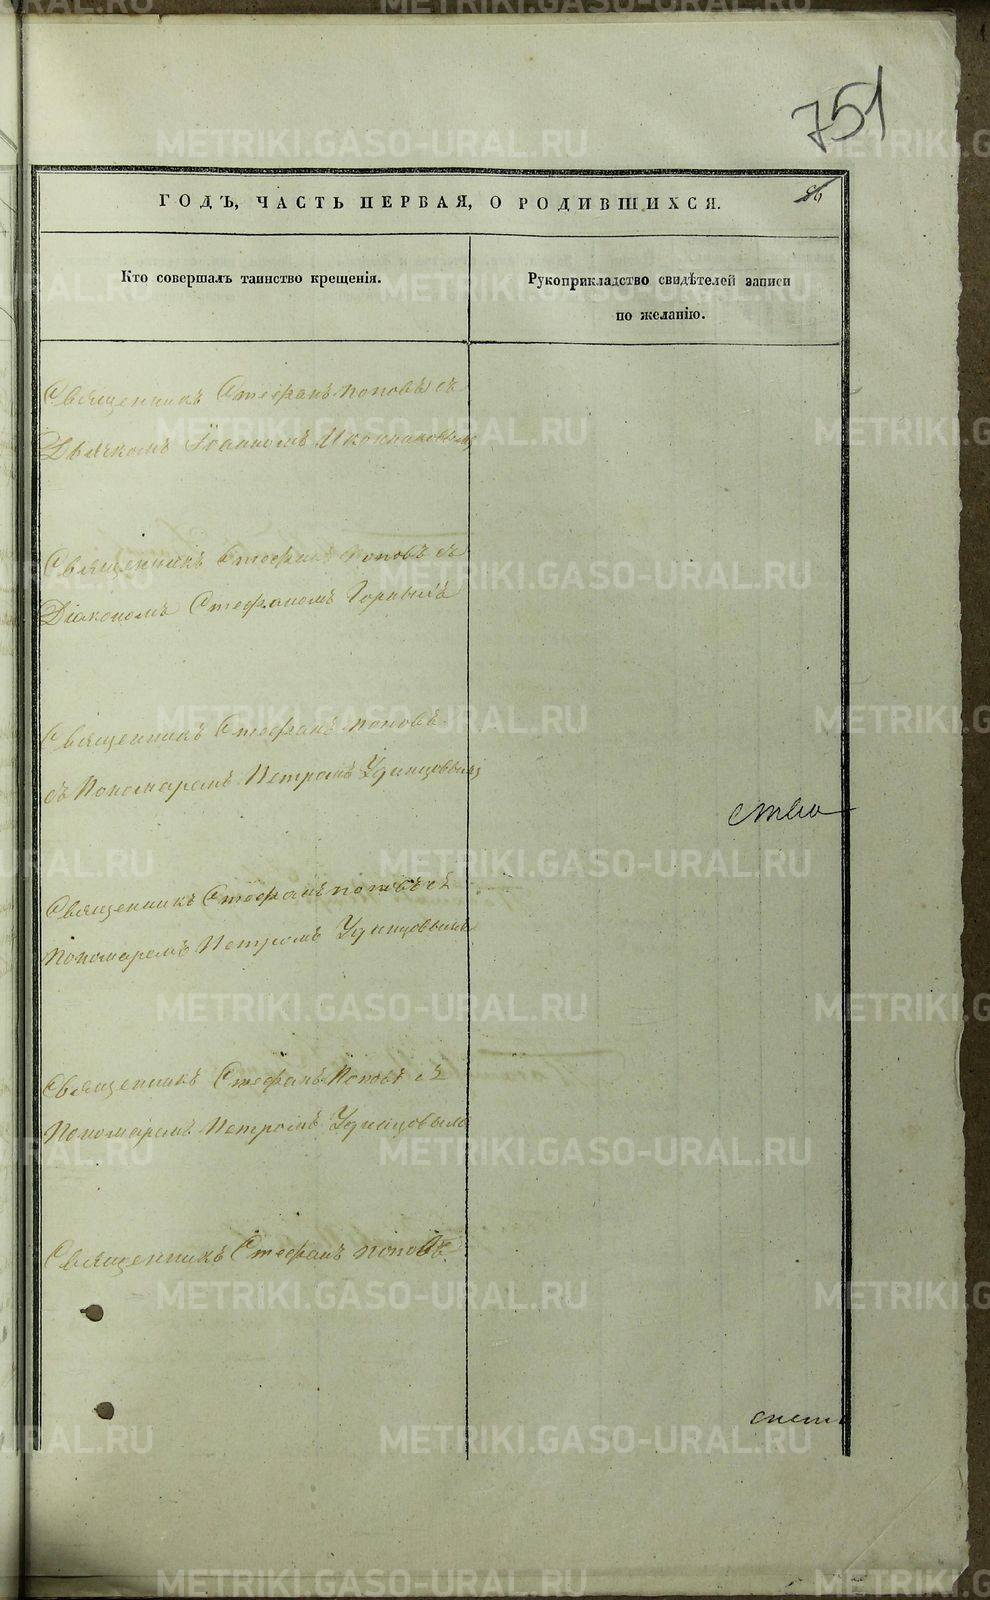 751
86
ГОДЪ, ЧАСТЬ ПЕРВАЯ, О РОДИВШИХСЯ.
Кто совершалъ таинство крещенія.
Рукоприкладство свидѣтелей записи
по желанію.
Священникъ Стефанъ Поповъ съ
Дьячкомъ Іоанномъ Иконниковымъ
Священникъ Стефанъ Поповъ съ
Діакономъ Стефаномъ Горныхъ
Священникъ Стефанъ Поповъ
съ Пономаремъ Петромъ Удинцовымъ
ство
Священникъ Стефанъ Поповъ съ
Пономаремъ Петромъ Удинцовымъ
Священникъ Стефанъ Поповъ съ
Пономаремъ Петромъ Удинцовымъ
Священникъ Стефанъ Поповъ.
METRIKI.GASO-URAL.RU